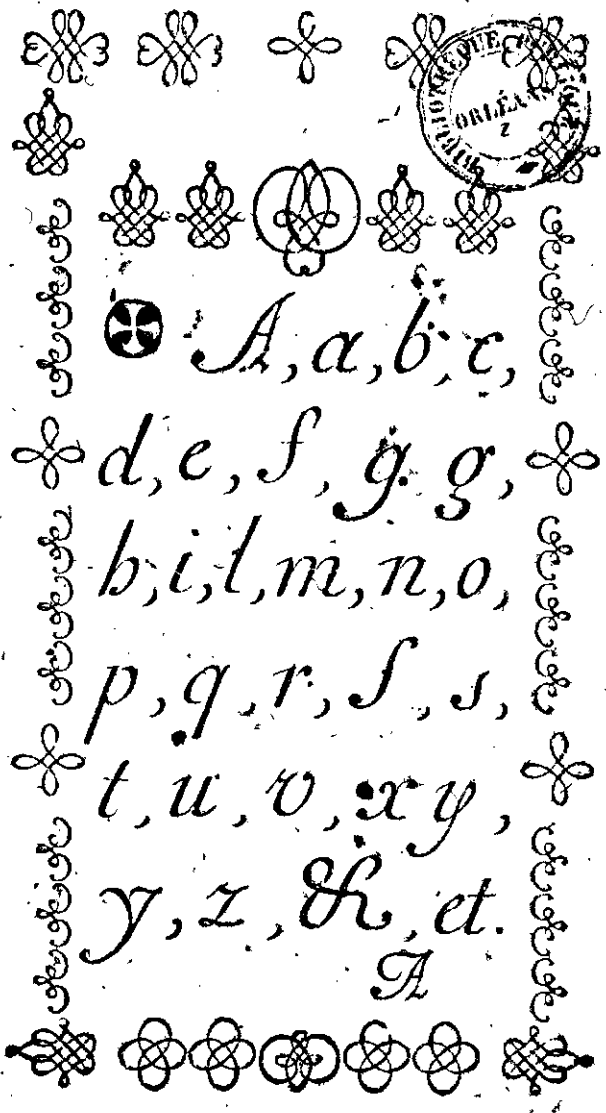 BIBLIOTHEQUE PUBLIQUE
ORLÉANS
✠ A, a, b, c,
d, e, f, g. g,
h, i, l, m, n, o,
p, q, r, ſ, s,
t, u, v, x y,
y, z, &, et.
A